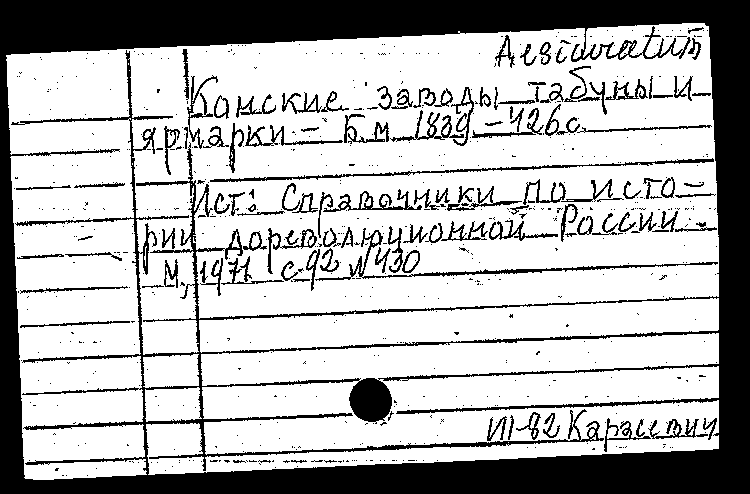 Desideratum
Конские заводы табуны и
ярмарки – Б.м. 1839 – 426с.
Ист: Справочники по исто-
рии дореволюционной России.
М, 1971 с 92 №430
III-82 Карасевич